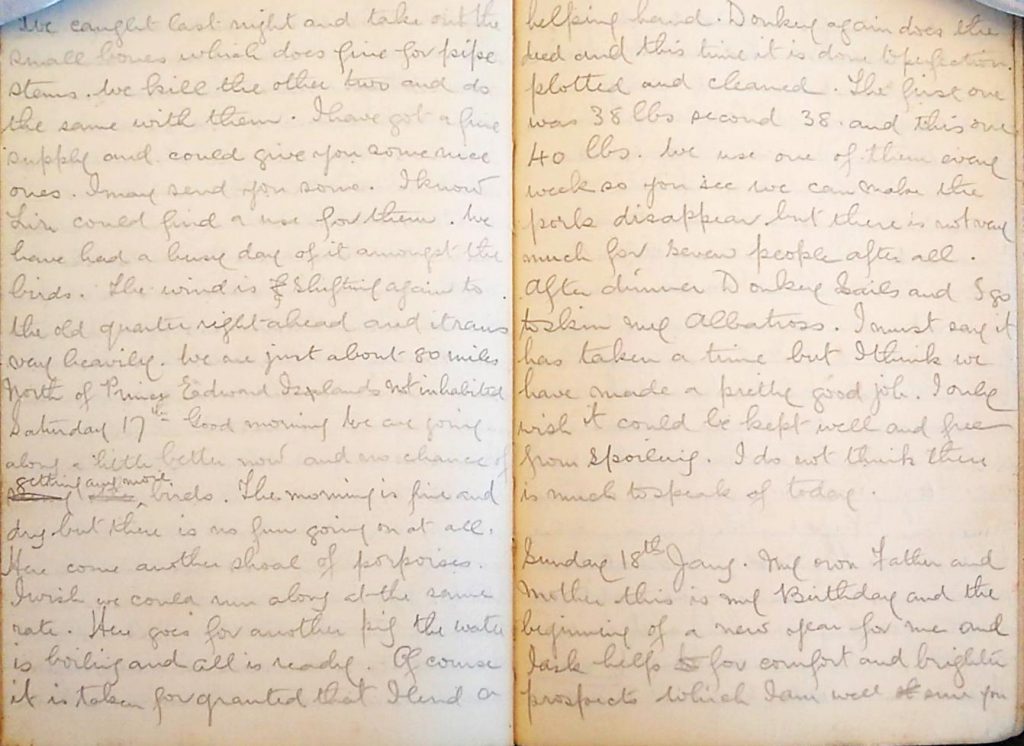 We caught last night and take out the
small bones which does fine for pipe
stems. We kill the other two and do
the same with them. I have got a fine
supply and could give you some nice
ones. I may send you some. I know
could find a use for them. We
have had a busy day of it amongst the
birds. The wind is shifting again to
the old quarter right ahead and it rains
very heavily. We are just about 80 miles
North of Prince Edward Islands not inhabited
Saturday 17th Good morning We are going
along a little better now and no chance of
getting any more birds. The morning is fine and
dry but there is no fun going on at all.
Here come another shoal of porpoises.
I wish we could run along at the same
rate. Here goes for another pig the water
is boiling and all is ready. Of course
it is taken for granted that I lend a
helping hand. Donkey again does the
deed and this time it is done to perfection.
plotted and cleaned. The first one
was 38 lbs second 38 and this one
40 lbs. We use one of them every
week so you see we can make the
pork disappear but there is not very
much for seven people after all.
After dinner Donkey Sails and I go
to skin my Albatross. I must say it
has taken a time but I think we
have made a pretty good job. I only
wish it could be kept well and free
from spoiling. I do not think there
is much to speak of today.
Sunday 18th Jany. My own Father and
Mother this is my Birthday and the
beginning of a new year for me and
I ask help for comfort and brighter
prospects which I am well sure you